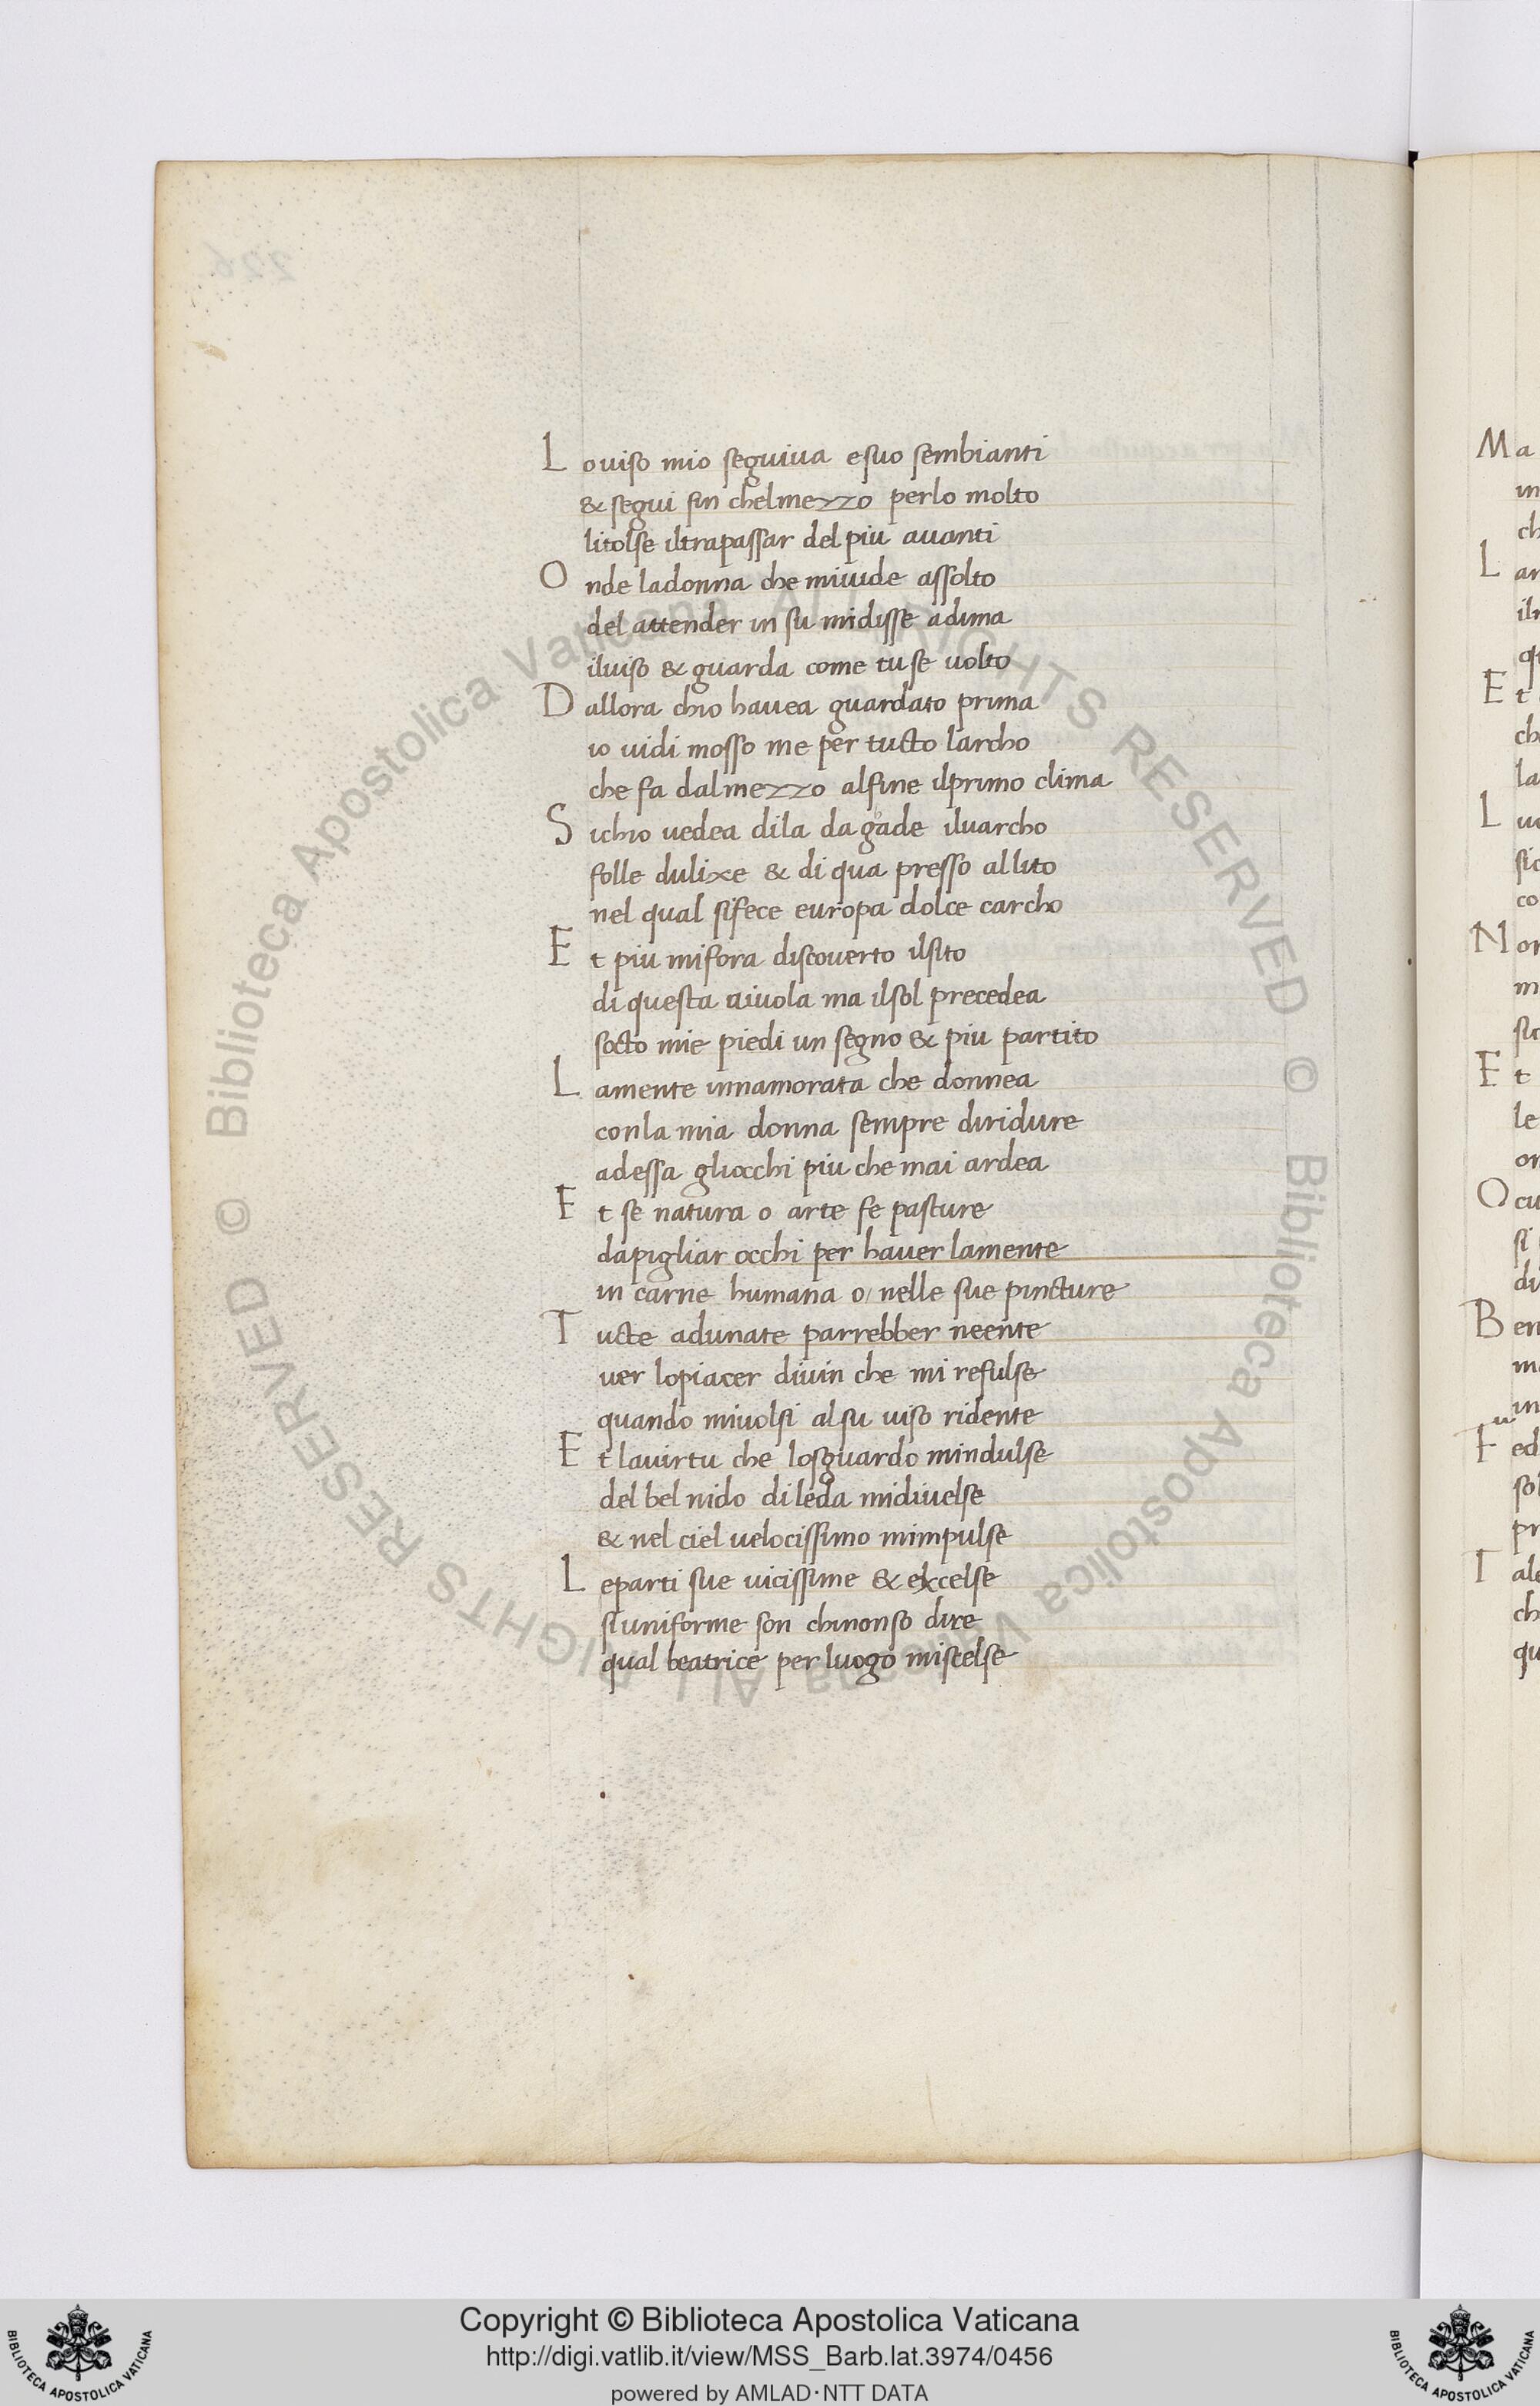 L oviso mio seguiva e suo sembianti
& segui sin chelmezzo perlo molto
litolse iltrapassar del piu avanti
O nde ladonna che mivide assolto
del attender in su midisse adima
ilviso & guarda come tuse volto
D allora chio havea guardato prima
io vidi mosso me per tucto larcho
che fa dalmezzo alfine ilprimo clima
S ichio vedea dila da gade ilvarcho
folle dulixe & di qua presso allito
nel qual sifece europa dolce carcho
E t piu mifora discoverto ilsito
di questa aivola ma ilsol precedea
socto mie piedi un segno & piu partito
L amente innamorata che donnea
conla mia donna sempre diridure
adessa gliocchi piu che mai ardea
E t se natura o arte fe pasture
dapigliar occhi per haver lamente
in carne humana o/ nelle sue pincture
T ucte adunate parrebber neente
ver lopiacer divin che mi refulse
quando mivolsi alsu viso ridente
E t lavirtu che losguardo mindulse
del bel nido di leda midivelse
& nel ciel velocissimo mimpulse
L eparti sue vicissime & excelse
siuniforme son chinonso dire
qual beatrice per luogo miscelse
226
© Biblioteca Apostolica Vaticana ALL RIGHTS RESERVED
© Biblioteca Apostolica Vaticana ALL RIGHTS RESERVED
M a
in
ch
L ar
iln
qu
E t
ch
la
L
sic
co
N on
m
E t
le
on
O cu
si
di
B en
in
F ed
sol
pr
T ale
ch
qu
Copyright © Biblioteca Apostolica Vaticana
http://digi.vatlib.it/view/MSS_Barb.lat.3974/0456
powered by AMLAD·NTT DATA
BIBLIOTECA APOSTOLICA VATICANA
BIBLIOTECA APOSTOLICA VATICANA